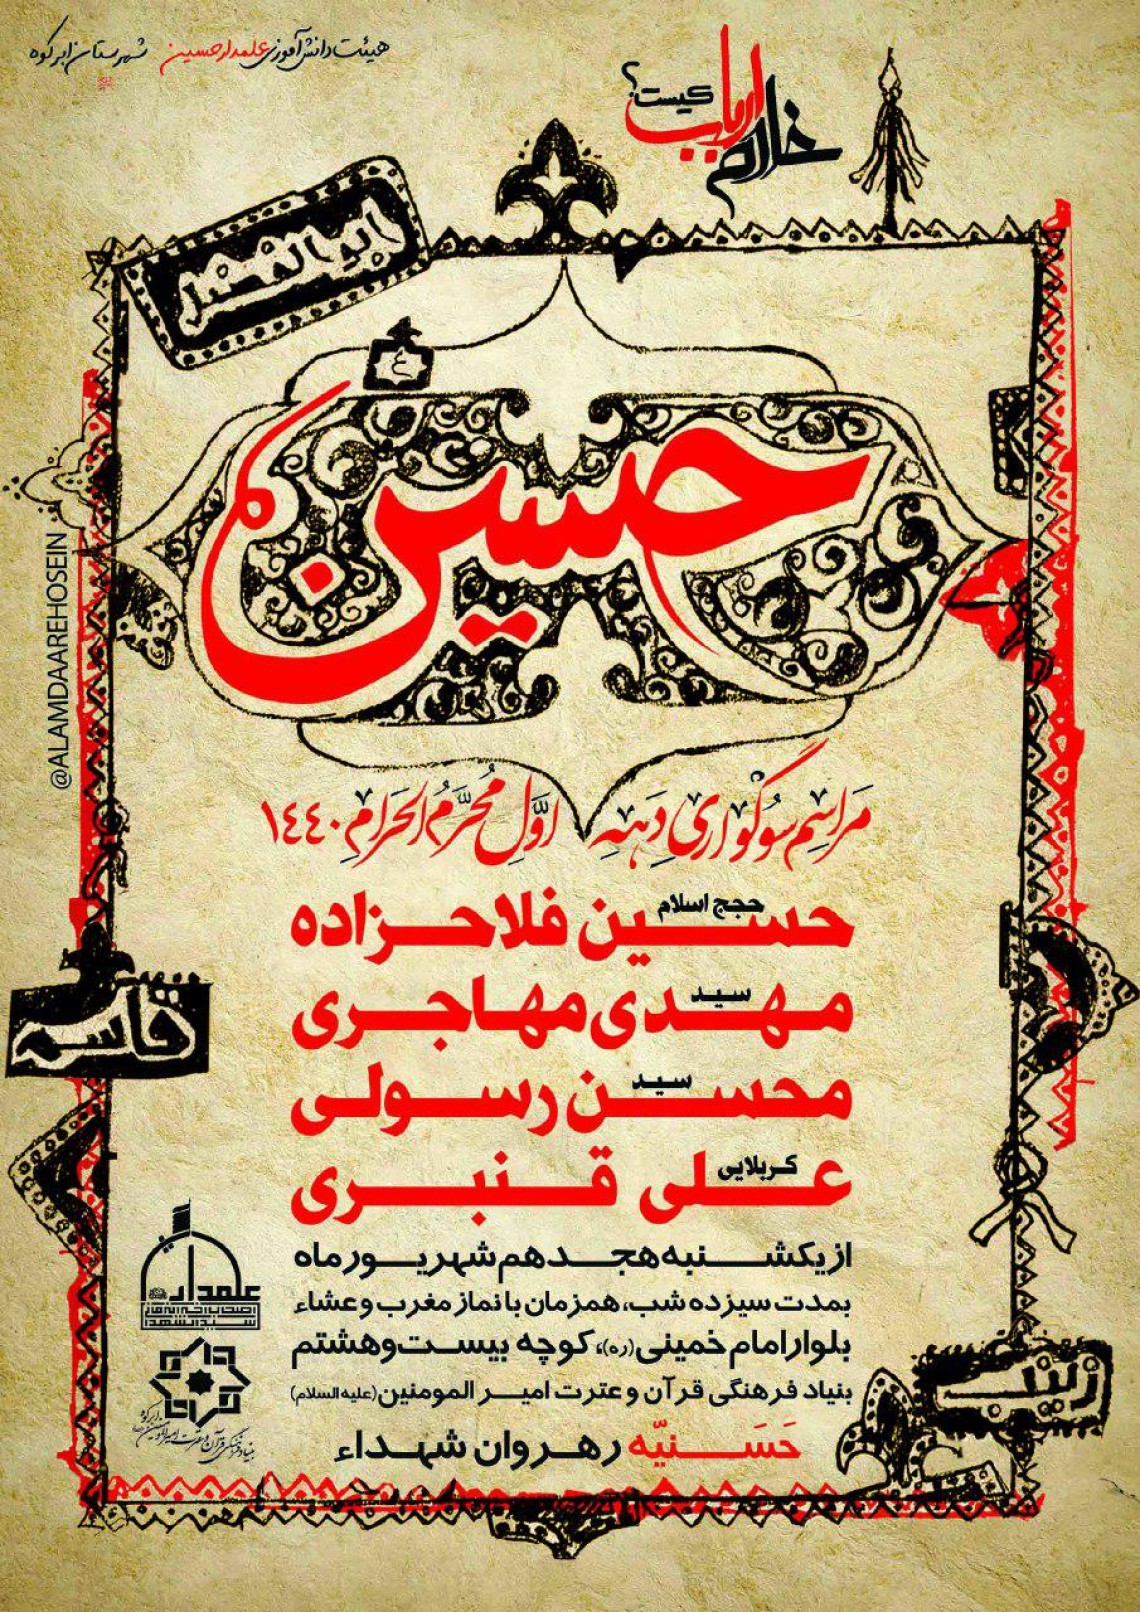 هیئت دانش‌آموزی علمدار حسین شهرستان ابرکوه
غلام ارباب کیست؟
ابوالفضل
ع
حسینم
@ALAMDAAREHOSEIN
مَراسِم سوُگواریِ دَهِهِ اوَّلِ مُحَرَّمُ الحَرامِ ۱۴۴۰
حجج اسلام
حسین فلاحزاده
سید
مهدی مهاجری
سید
محسن رسولی
کربلایی
علی قنبری
قاسم
از یکشنبه هجدهم شهریور ماه
بمدت سیزده شب، همزمان با نماز مغرب و عشاء
بلوار امام خمینی (ره)، کوچه بیست و هشتم
بنیاد فرهنگی قرآن و عترت امیر المومنین (علیه السلام)
حَسَنیّه رهروان شهداء
زینب
علمدار